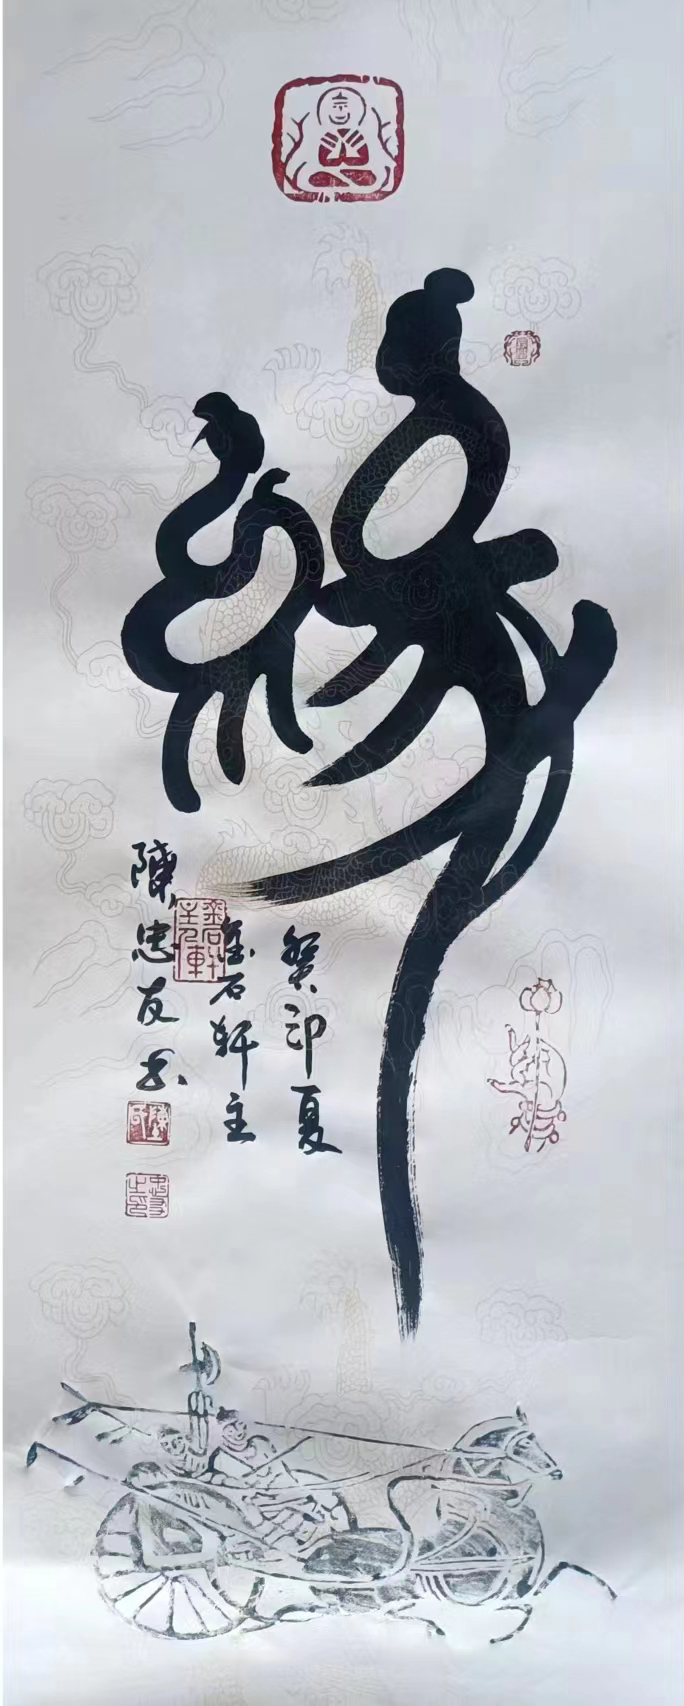 緣
癸卯夏
金石軒主
陳忠友书